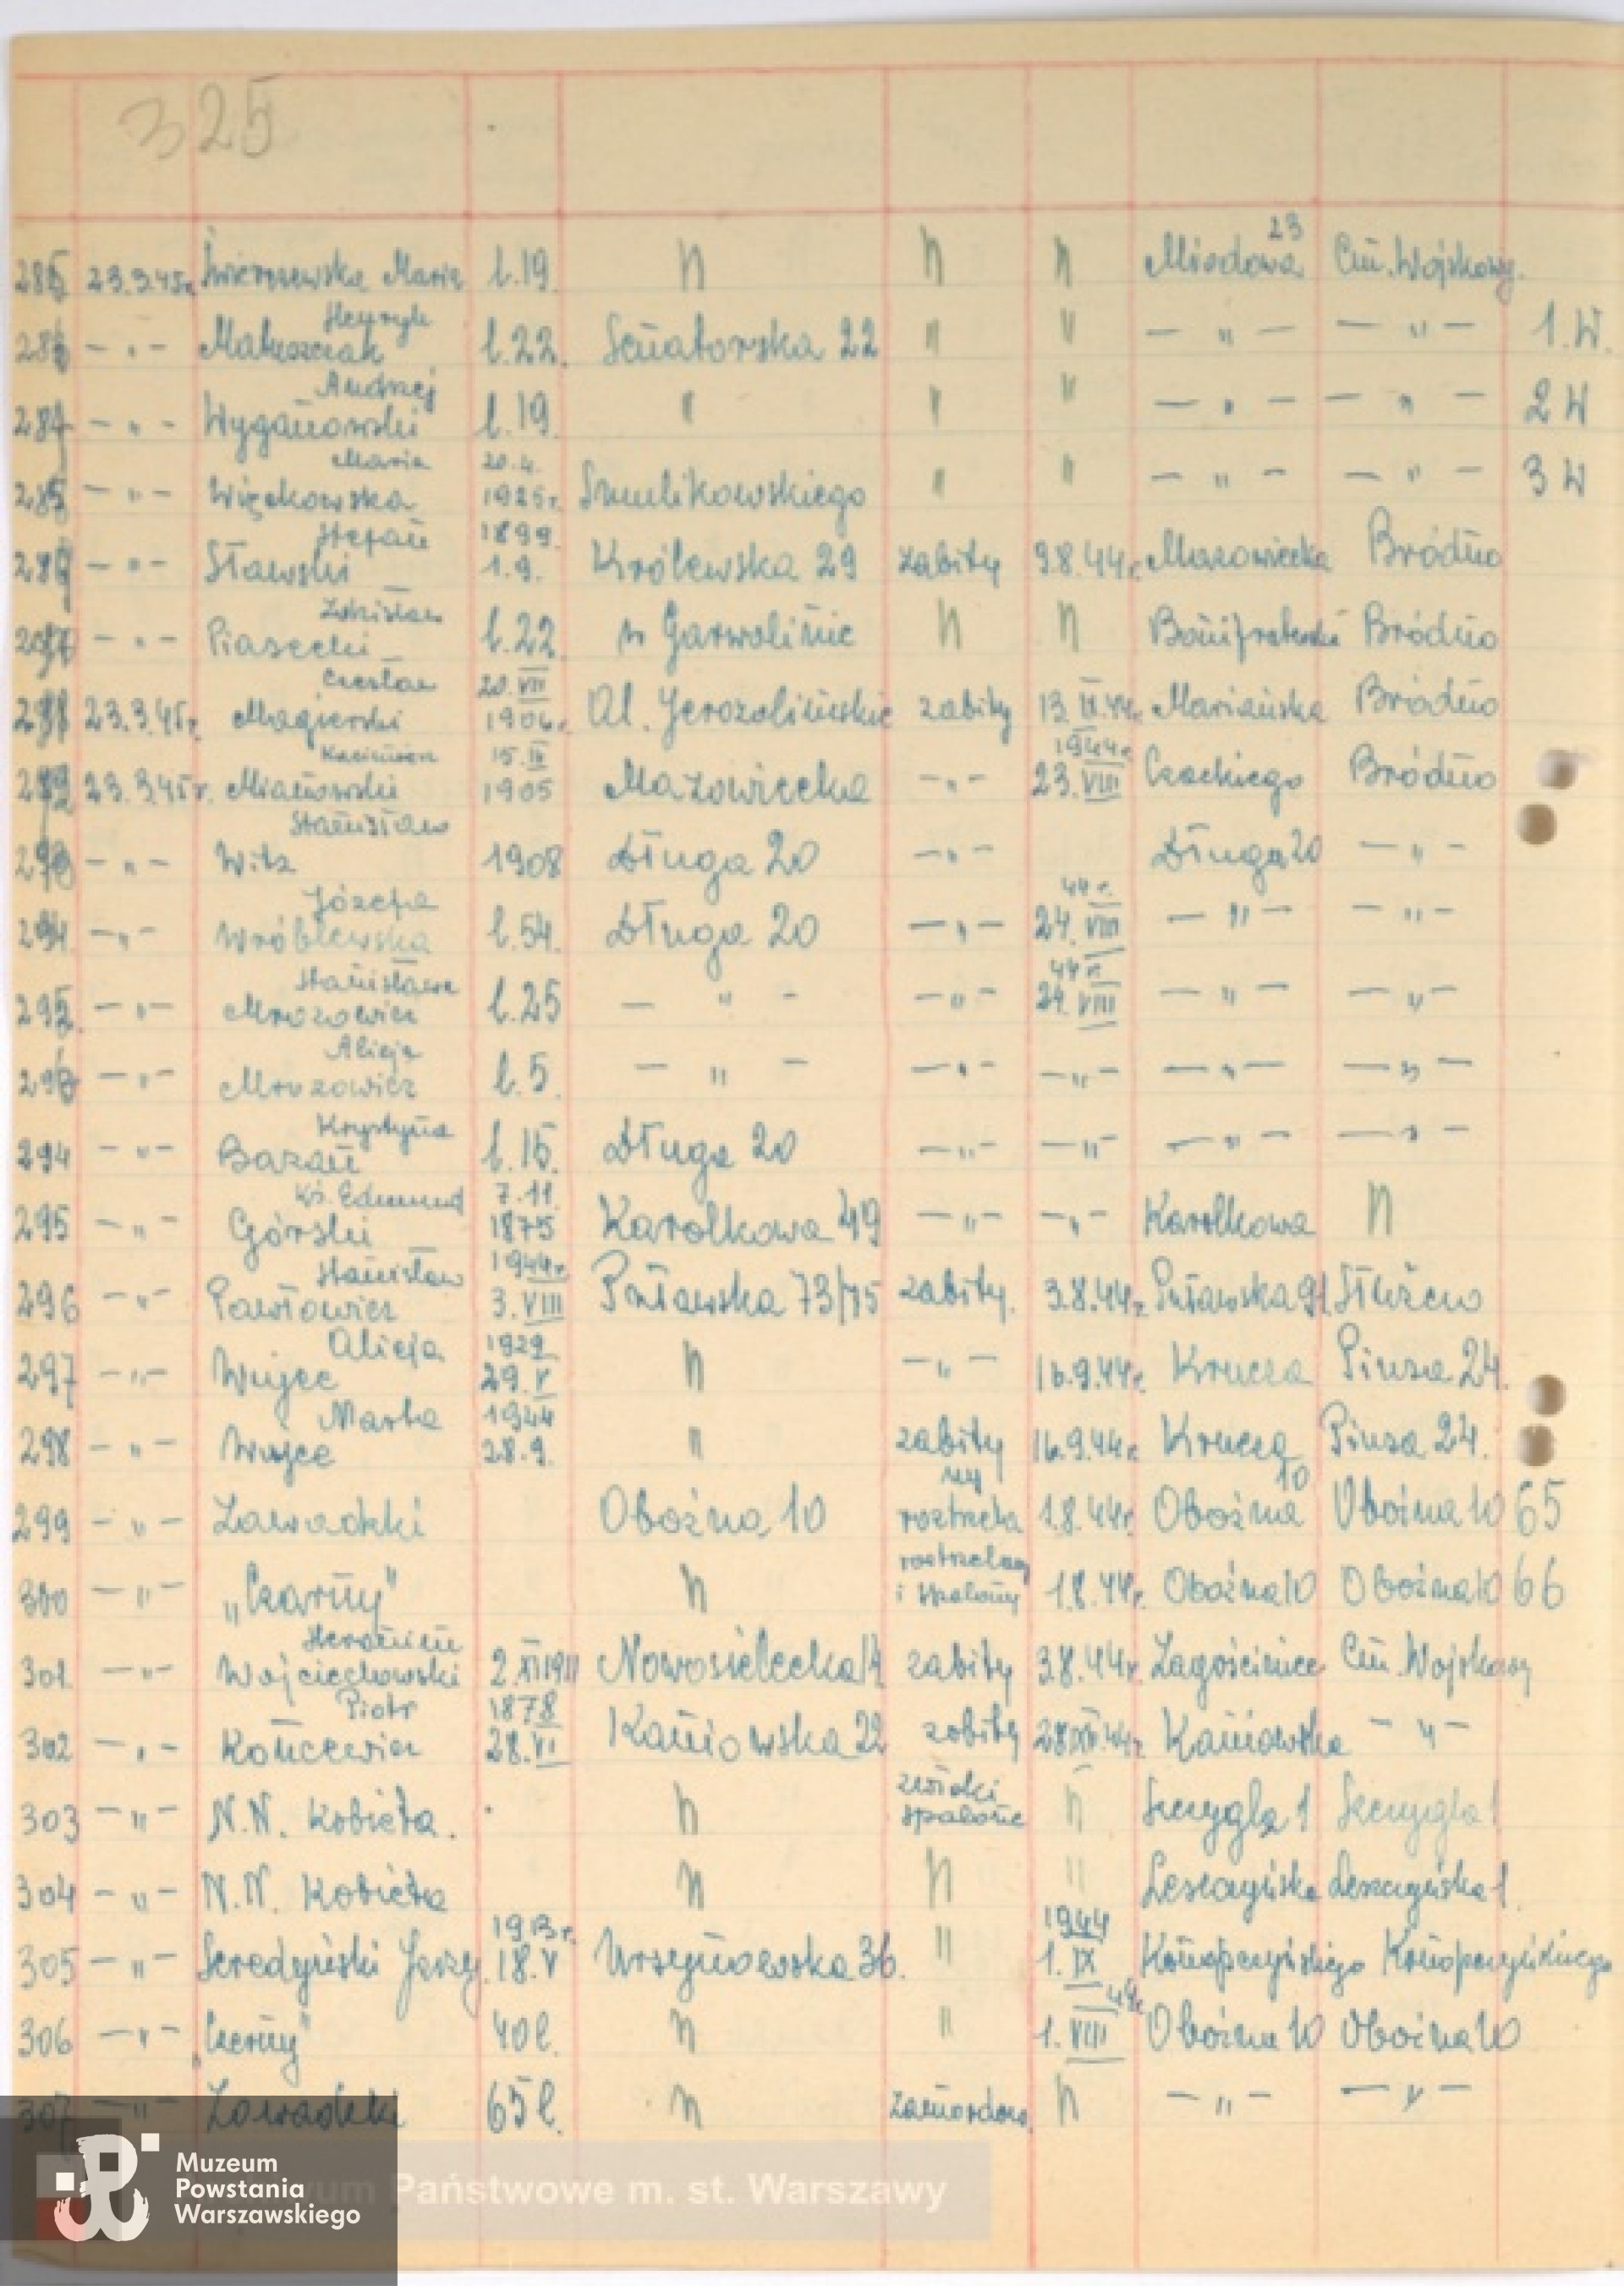 325
23
23.3.45r. Świerszewska Maria l.19. n n n Miodowa Cm. Wojskowy.
Henryk
— „ — Matuszczak l.22. Senatorska 22 " " — „ — — „ — 1.W.
Andrzej
— „ — Wyganowski l.19. " " " — „ — — „ — 2 W
Maria 20.4.
— „ — Więckowska 1925r. Smulikowskiego " " — „ — — „ — 3 W
Stefan 1899.
— „ — Sławski 1.9. Królewska 29 zabity 9.8.44r. Mazowiecka Bródno
Zdzisław
— „ — Piasecki l.22. w Garwolinie n n Bonifraterska Bródno
Czesław 20.VII
23.3.45r. Magierski 1906r. Al. Jerozolimskie zabity 13.IX.44r. Mariańska Bródno
Kazimierz 15.IX 1944r.
23.3.45r. Mianowski 1905 Mazowiecka — „ — 23.VIII Czackiego Bródno
Stanisław
— „ — Witz 1908 Długa 20 — „ — Długa 20 — „ —
Józefa 44r.
— „ — Wróblewska l.54. Długa 20 — „ — 24.VIII — „ — — „ —
Stanisława 44r.
— „ — Mrozowicz l.25 — „ — — „ — 24.VIII — „ — — „ —
Alicja
— „ — Mrozowicz l.5. — „ — — „ — — „ — — „ — — „ —
Krystyna
294 — „ — Bazan l.15. Długa 20 — „ — — „ — — „ — — „ —
Ks. Edmund 7.11.
295 — „ — Górski 1875 Karolkowa 49 — „ — — „ — Karolkowa n
Stanisław 1944r.
296 — „ — Pawłowicz 3.VIII Puławska 73/75 zabity. 3.8.44r. Puławska 91 Służew
Alicja 1929
297 — „ — Wujec 29.V n — „ — 16.9.44r. Krucza Piusa 24.
Marta 1944
298 — „ — Wujec 28.9. " zabity 16.9.44r. Krucza Piusa 24.
ny 10
299 — „ — Zawadzki Oboźna 10 roztrzela 1.8.44r. Oboźna Oboźna 10 65
roztrzelany
300 — „ — „Czarny" n i spalony 1.8.44r. Oboźna 10 Oboźna 10 66
Heronim
301. — „ — Wojciechowski 2.XI1911 Nowosielecka 14 zabity 3.8.44r. Zagościniec Cm. Wojskowy
Piotr 1878
302 — „ — Kończewicz 28.VI Kaniowska 22 zabity Kaniowska — „ —
zwłoki
303 — „ — N.N. Kobieta. n spalone n Szczygla 1 Szczygla 1
304 — „ — N.N. Kobieta n n " Leszczyńska Leszczyńska 1.
1913r. 1944
305 — „ — Seredyński Jerzy 18.V Ursynowska 36. " 1.IX Konopczyńskiego Konopczyńskiego
44r.
306 — „ — „Czerny" 40 l. n " 1.VIII Oboźna 10 Oboźna 10
307 — „ — Zawadzki 65 l. n zamordow. n — „ — — „ —
Muzeum
Powstania
Warszawskiego
Państwowe m. st. Warszawy